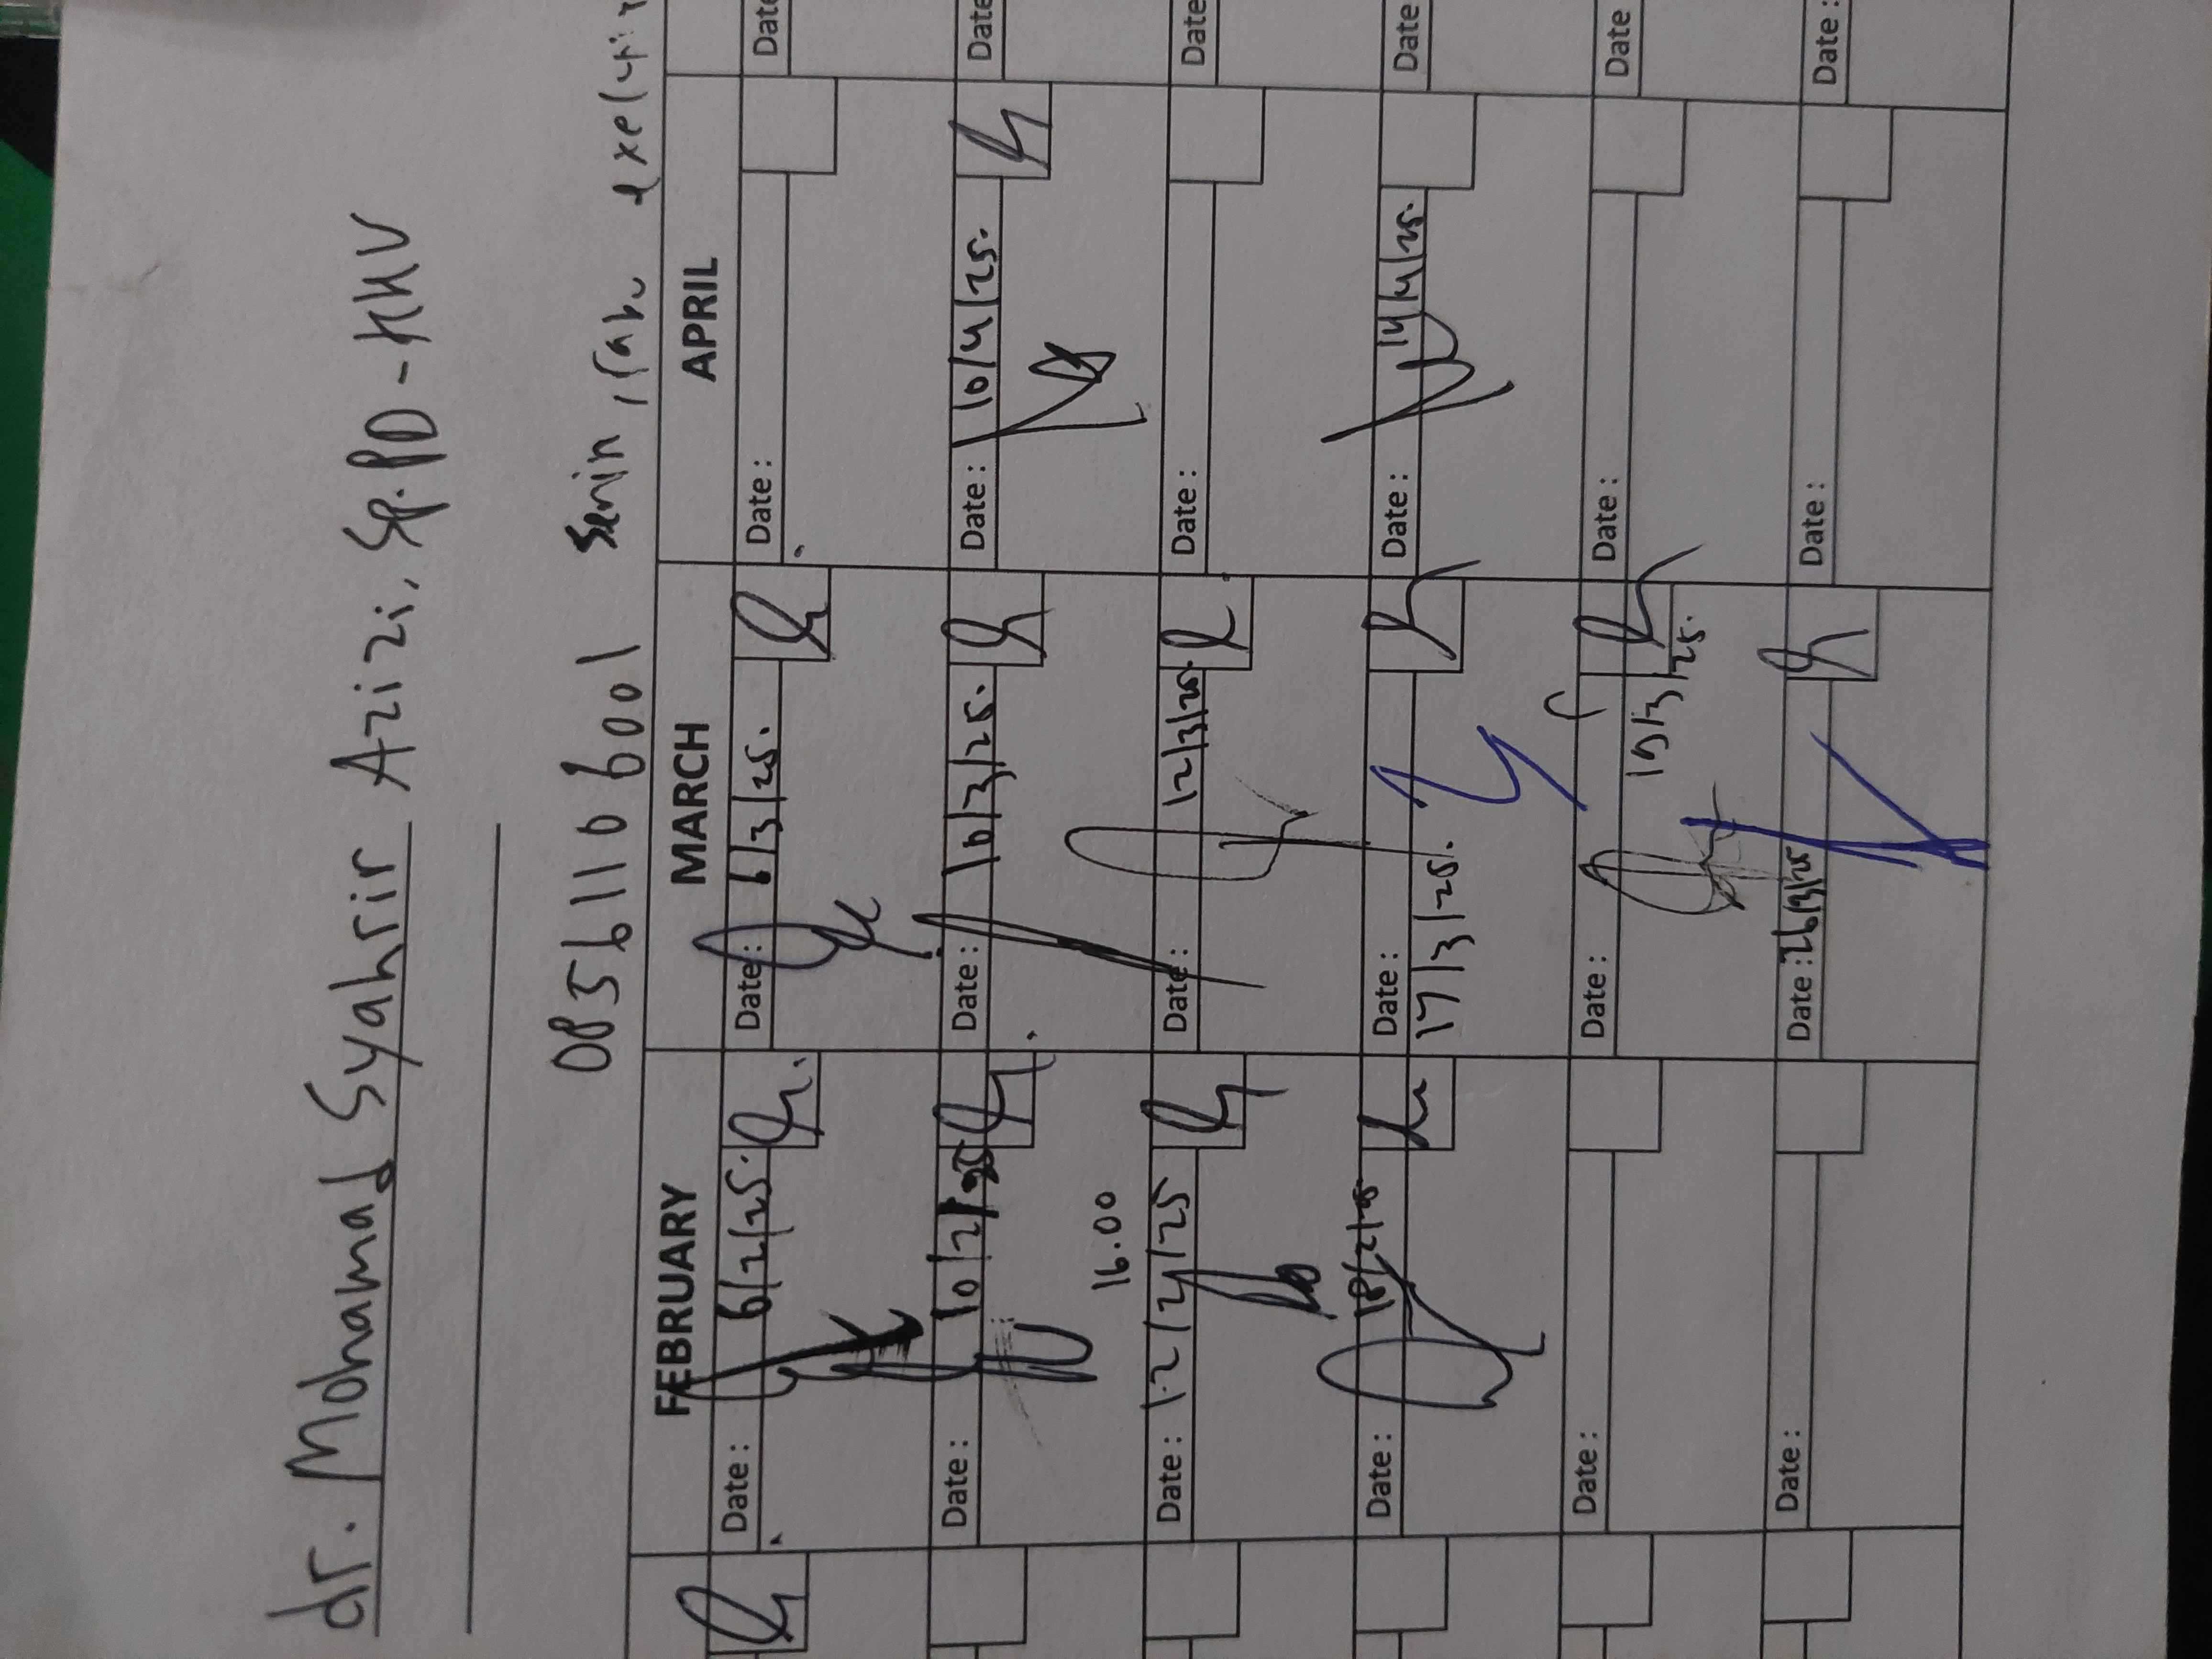 dr. Mohamad Syahrir Azizi, Sp.PD-KHV
Senin, rabu
FEBRUARY MARCH APRIL
Date: 6/2/25. Date: 6/3/25. Date: Date
Date: 10/2/25 Date: 10/3/25. Date: 10/4/25. Date
16.00
Date: 12/2/25 Date: 12/3/25. Date: Date
Date: 18/2/25 Date: Date: 14/4/25. Date
17/3/25.
Date: Date: Date: Date
19/3/25.
Date: Date: 26/3/25 Date: Date: